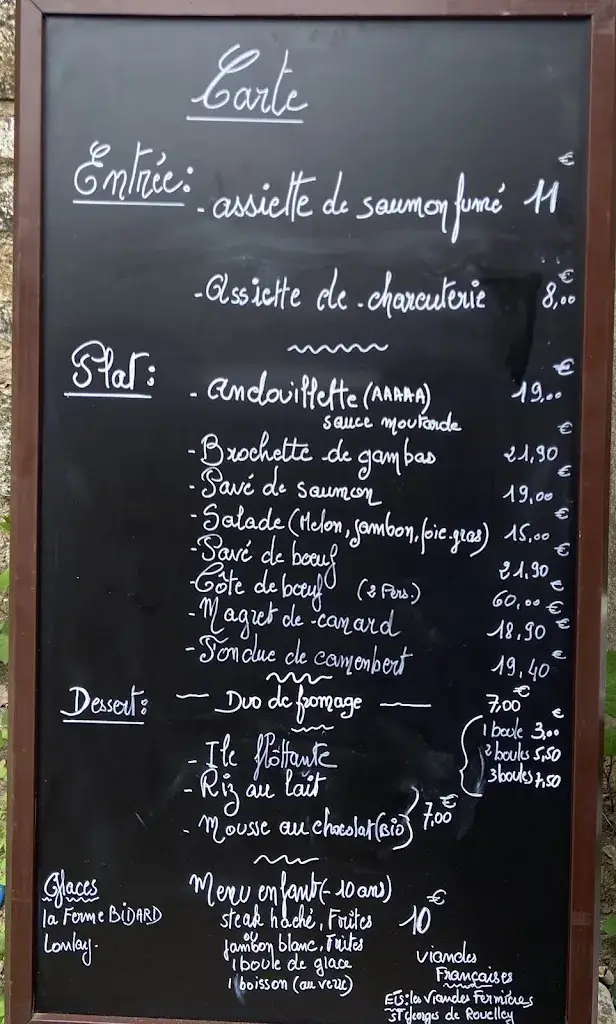 Carte
Entrée:
- assiette de saumon fumé 11€
- Assiette de charcuterie 8,00€
Plat:
- Andouillette (AAAAA) 19,00€
sauce moutarde
- Brochette de gambas 21,90€
- Pavé de saumon 19,00€
- Salade (Melon, jambon, foie-gras) 15,00€
- Pavé de bœuf 21,90€
- Côte de bœuf (2 Pers.) 60,00€
- Magret de canard 18,90€
- Fondue de camembert 19,40€
— Duo de fromage — 7,00€
Dessert:
- Ile flôttante
- Riz au lait
- Mousse au chocolat (BiO) 7,00€
1 boule 3,00€
2 boules 5,50
3 boules 7,50
Glaces
la Ferme BiDARD
Lonlay.
Menu enfant (- 10 ans) 10€
steak haché, Frites
ou
jambon blanc, Frites
1 boule de glace
1 boisson (au verre)
viandes
Françaises
Ets: les Viandes Fermières
St Georges de Rouelley